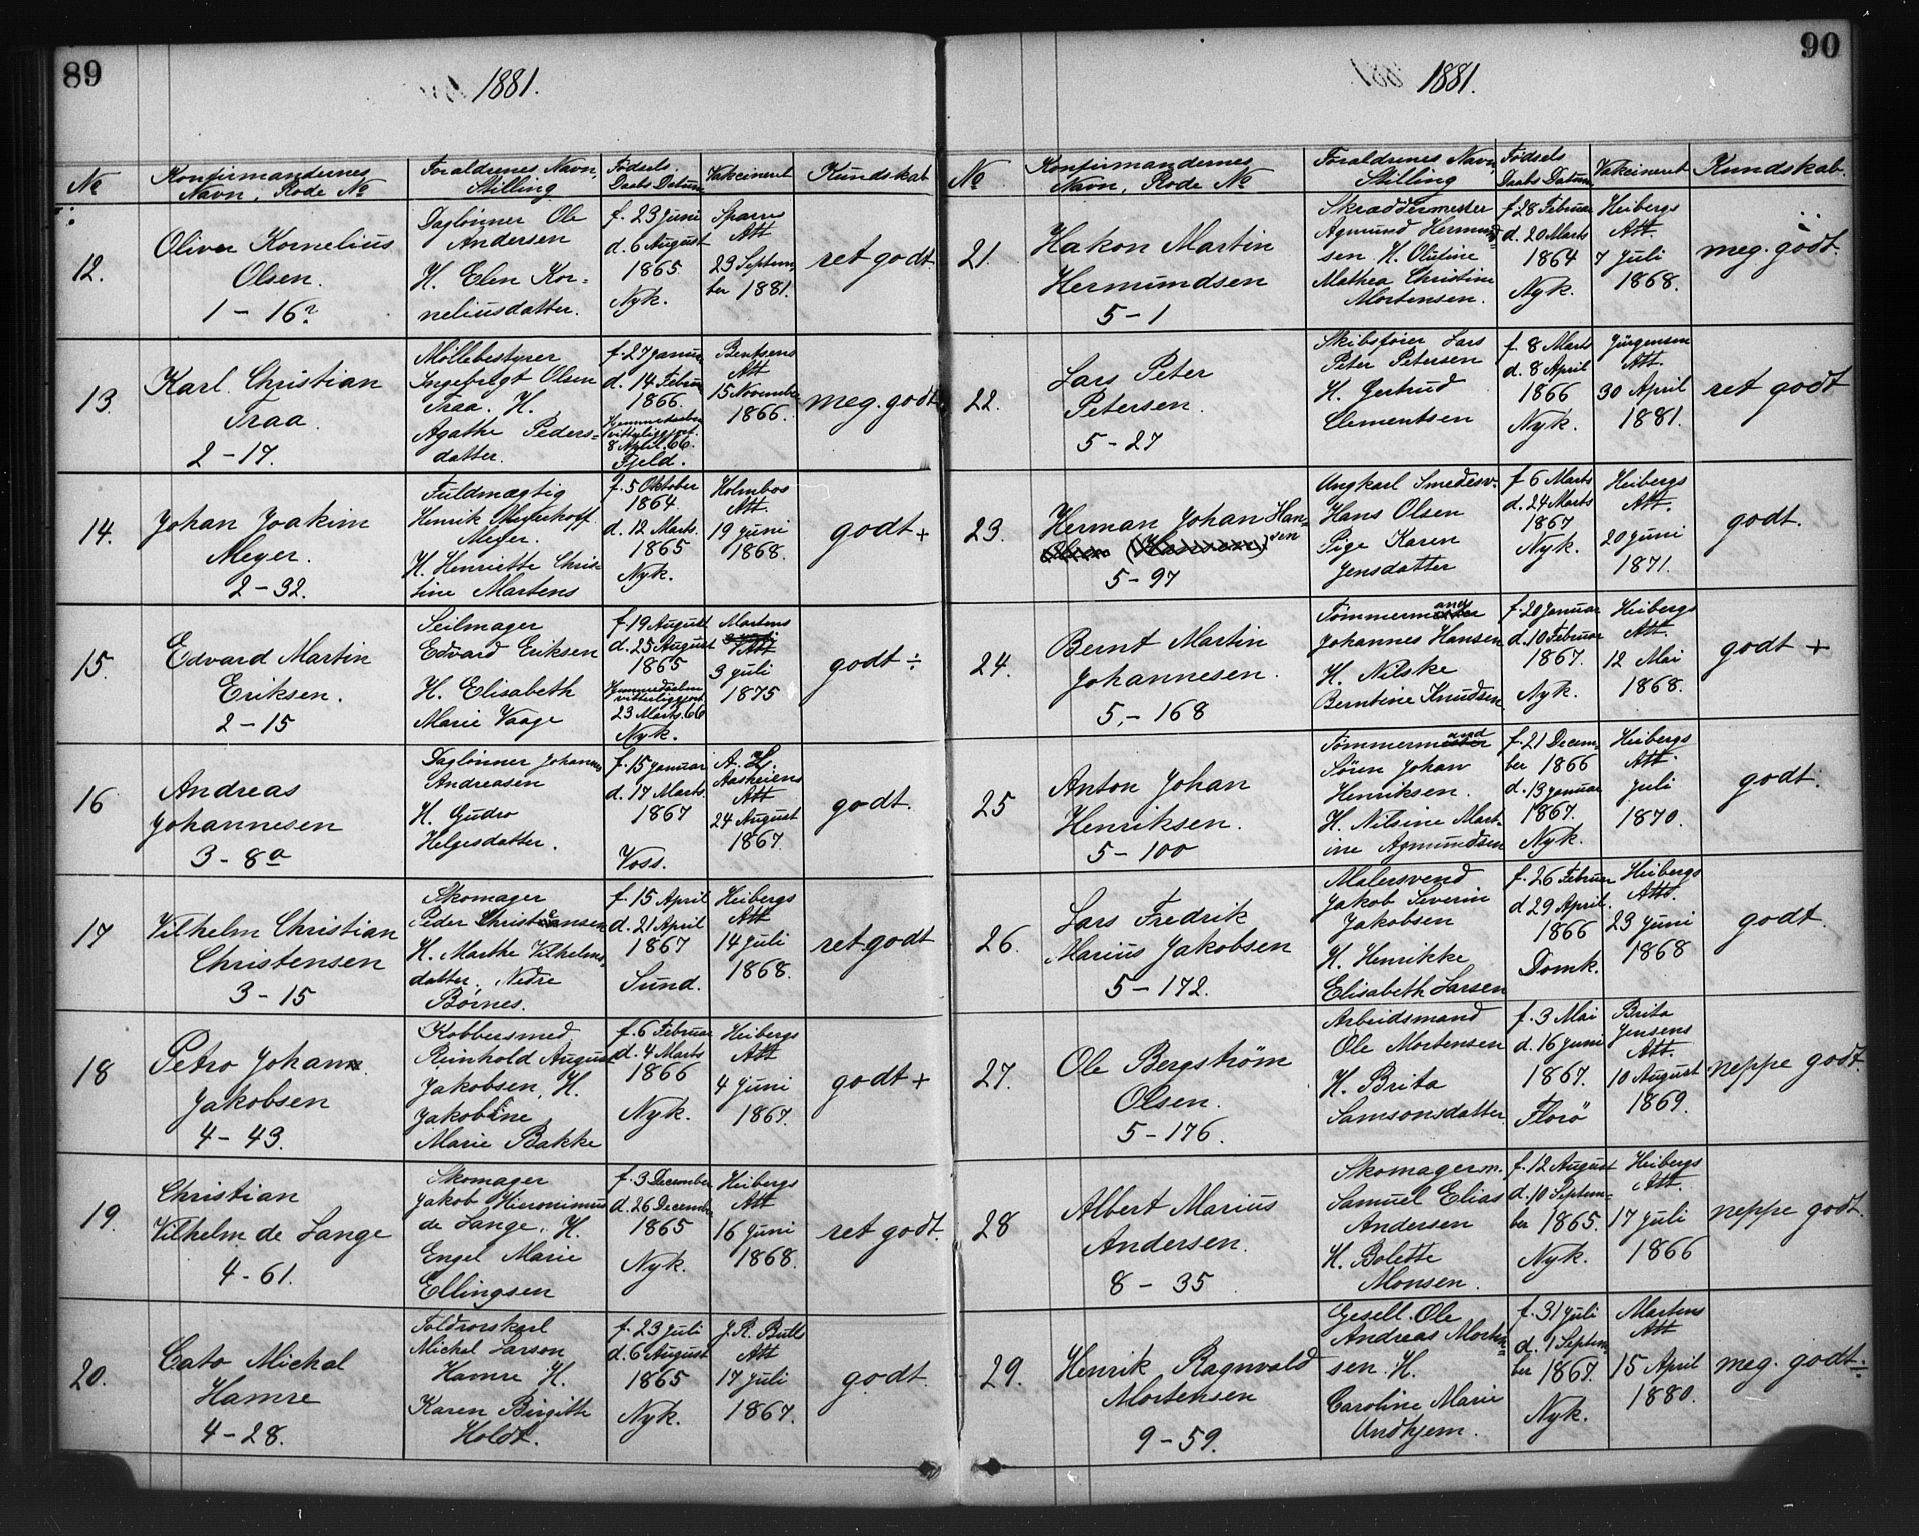 89
1881.
№
Konfirmandernes Navn, Rode №
Foraldrenes Navn, Stilling
Fødsels Daabs Datum
Vakcineret
Kundskab
12.
Oliver Kornelius
Olsen.
1 – 16
Daglønner Ole
Andersen
H. Elen Kor=
neliusdatter.
f. 23 Juni
d. 6 August
1865
Nyk.
Sparre
Att
23 Septem,
ber 1881.
ret godt.
13.
Karl Christian
Traa.
2 – 17.
Møllebestyrer
Ingebrigt Olsen
Traa. H.
Agathe Peders=
datter.
f. 27 Janu
d. 14 Febru
1866.
Hjemmedaaben
8 April. 66.
Fjeld.
Bentsens
Att
15 November
1866.
meg. godt
14.
Johan Joakim
Meyer.
2 – 32.
Fuldmægtig
Henrik Meyerhoff
Meyer.
H. Henriette Chris=
tine Martens
f. 5 Oktober
1864
d. 12 Marts.
1865
Nyk.
Holmbos
Att.
19 Juni
1868.
godt +
15.
Edvard Martin
Eriksen.
2 – 15
Seilmager
Edvard Eriksen
H. Elisabeth
Marie Vaage
f. 19 August
d. 25 August
1865
Hjemmedaaben
23 Marts. 66
Nyk.
Martens
Att
3 Juli
1875
godt ÷
16
Andreas
Johannesen
3 – 8a
Daglønner Johannes
Andreasen
H. Gudro
Helgesdatter.
f. 15 Januar
d. 17 Marts.
1867
Voss.
A. L.
Aasheiens
Att
24 August
1867.
godt.
17
Vilhelm Christian
Christensen
3 – 15
Skomager
Peder Christensen
H. Marthe Vilhelms,
datter, Nedre
Børnes.
f. 15 April
d. 21 April
1867
Sund.
Heibergs
Att
14 Juli
1868.
ret godt
18
Petro Johan
Jakobsen
4 – 43.
Kobbersmed
Reinhold August
Jakobsen, H.
Jakobine
Marie Bakke
f. 6 Februar
d. 4 Marts
1866
Nyk.
Heibergs
Att
4 Juni
1867.
godt +
19.
Christian
Vilhelm de Lange
4 – 61.
Skomager
Jakob Hieronimus
de Lange, H.
Engel Marie
Ellingsen
f. 3 December
d. 26 Decembe
1865
Nyk.
Heibergs
Att
16 Juni
1868.
ret godt.
20.
Cato Michal
Hamre
4 – 28.
Toldrorskarl
Michel Larson
Hamre H.
Karen Birgitte
Holdt.
f. 23 Juli
d. 6 August
1865
Nyk.
J. R. Bulls
Att
17 Juli
1867.
godt.
90
1881.
№
Konfirmandernes Navn, Rode №
Foraldrenes Navn, Stilling
Fødsels Daabs Datum,
Vakcineret
Kundskab.
21
Hakon Martin
Hermundsen
5 – 1
Skræddermester
Agmund Hermund=
sen H. Olutine
Mathea Christine
Mortensen.
f. 28 Februar
d. 20 Marts
1864
Nyk.
Heibergs
Att.
7 Juli
1868.
meg. godt.
22.
Lars Peter
Petersen.
5 – 27
Skibsfører Lars
Peter Petersen
H. Gertrud
Clementsen
f. 8 Marts
d. 8 April
1866
Nyk.
Jürgensen
Att.
30 April
1881.
ret godt
23.
Herman Johan Han=
sen
5 – 97
Ungkarl Smedesv.
Hans Olsen
Pige Karen
Jensdatter
f. 6 Marts
d. 24 Marts
1867
Nyk.
Heibergs
Att.
20 Juni
1871.
godt.
24.
Bernt Martin
Johannesen.
5, – 168
Tømmermand
Johannes Hansen
H. Nilske
Berntine Knudsen
f. 20 Januar
d. 10 Februar
1867.
Nyk.
Heibergs
Att.
12 Mai
1868.
godt +
25
Anton Johan
Henriksen.
5 – 100
Tømmermand
Søren Johan
Henriksen.
H. Nilsine Mart=
ine Agmundsen
f. 21 Decem,
ber 1866
d. 13 Januar
1867.
Nyk.
Heibergs
Att.
Juli
1870.
godt.
26.
Lars Fredrik
Marius Jakobsen
5 – 172.
Malersvend
Jakob Severin
Jakobsen
H. Henrikke
Elisabeth Larsen
f. 26 Februar
d 29 April.
1866
Domk.
Heibergs
Att.
23 Juni
1868
godt.
27.
Ole Bergstrøm
Olsen.
5 – 176.
Arbeidsmand
Ole Mortensen
H. Brita
Samsonsdatter
f. 3 Mai
d. 16 Juni
1867.
Florö
Brita
Jensens
Att.
10 August
1869.
neppe godt.
28
Albert Marius
Andersen.
8 – 35
Skomagerm.
Samuel Elias
Andersen
H. Bolette
Monsen.
f. 12 August
d. 10 Septem=
ber 1865.
Nyk.
Heibergs
Att.
17 Juli
1866
neppe godt.
29.
Henrik Ragnvald
Mortensen
9 – 59.
Gesell. Ole
Andreas Morten=
sen H.
Caroline Marie
Undhjem.
f. 31 Juli
d. 1 Septem
ber 1867.
Nyk.
Martens
Att
15 April
1880.
meg. godt ÷